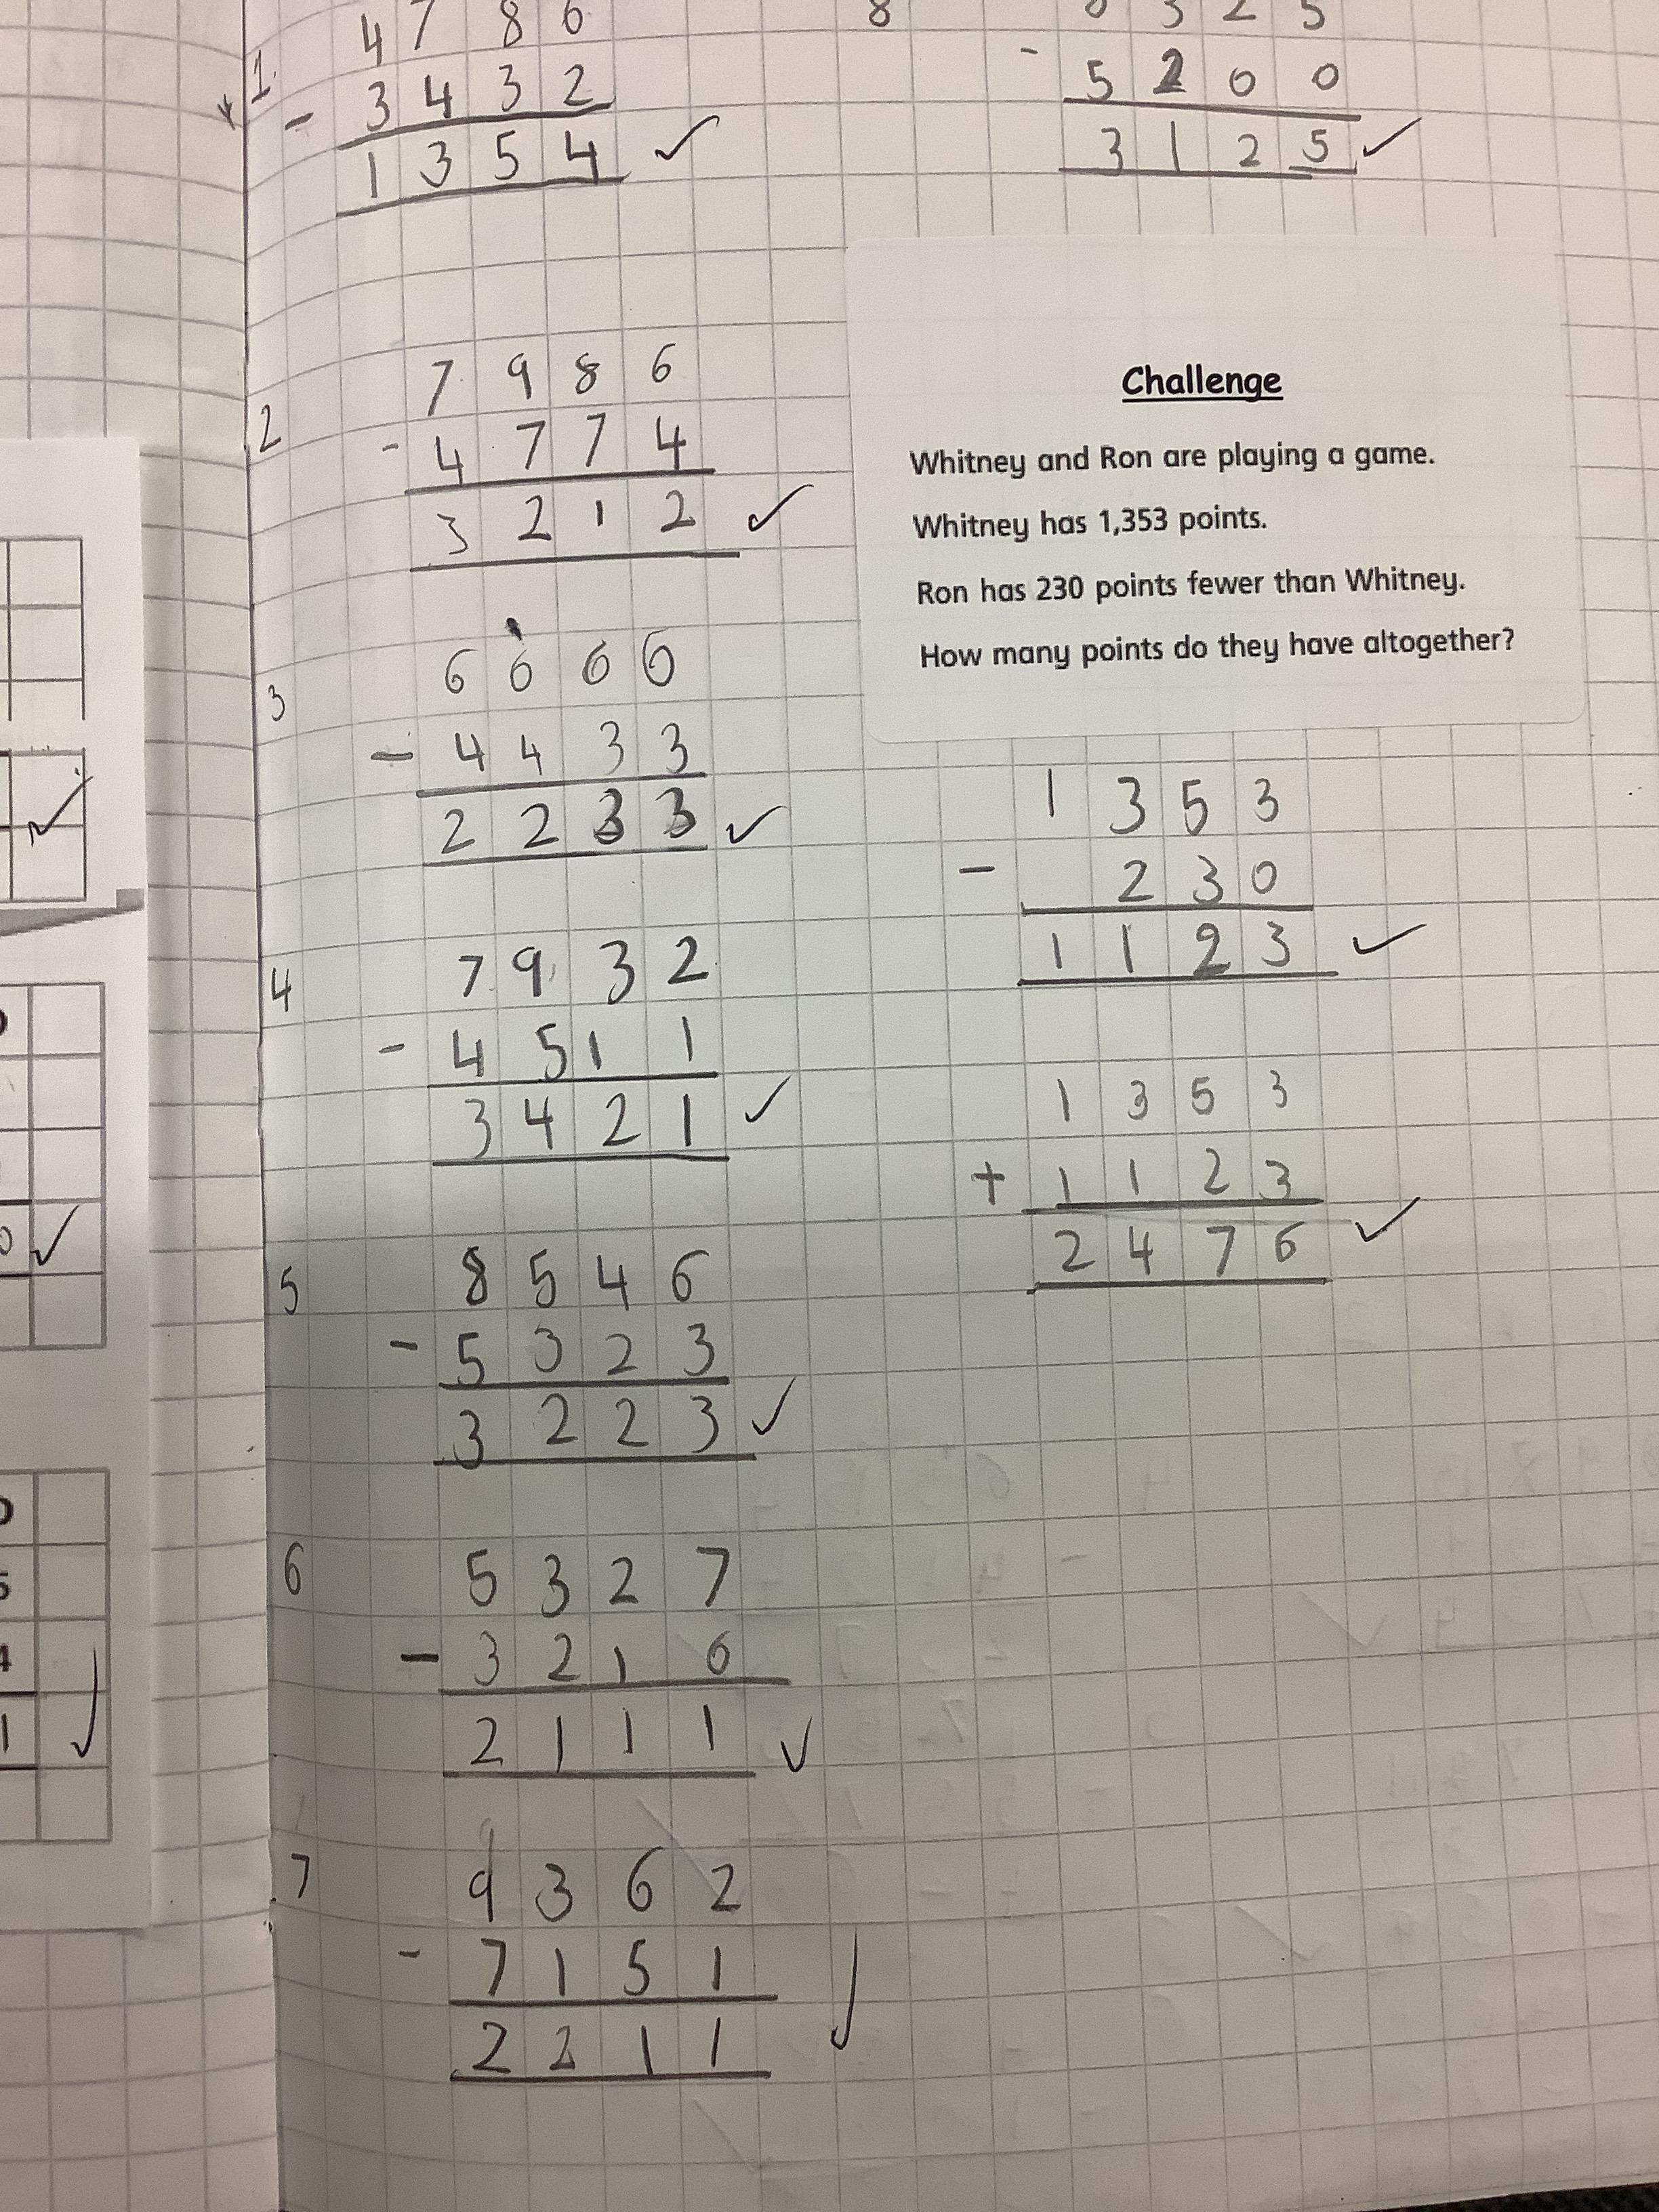 1. 4 7 8 6
- 3 4 3 2
1 3 5 4 ✓
2 7 9 8 6
- 4 7 7 4
3 2 1 2 ✓
3 6 6 6 6
- 4 4 3 3
2 2 3 3 ✓
4 7 9 3 2
- 4 5 1 1
3 4 2 1 ✓
5 8 5 4 6
- 5 3 2 3
3 2 2 3 ✓
6 5 3 2 7
- 3 2 1 6
2 1 1 1 ✓
7 9 3 6 2
- 7 1 5 1
2 2 1 1 ✓
8 8 3 2 5
- 5 2 0 0
3 1 2 5 ✓
Challenge
Whitney and Ron are playing a game.
Whitney has 1,353 points.
Ron has 230 points fewer than Whitney.
How many points do they have altogether?
1 3 5 3
- 2 3 0
1 1 2 3 ✓
1 3 5 3
+ 1 1 2 3
2 4 7 6 ✓